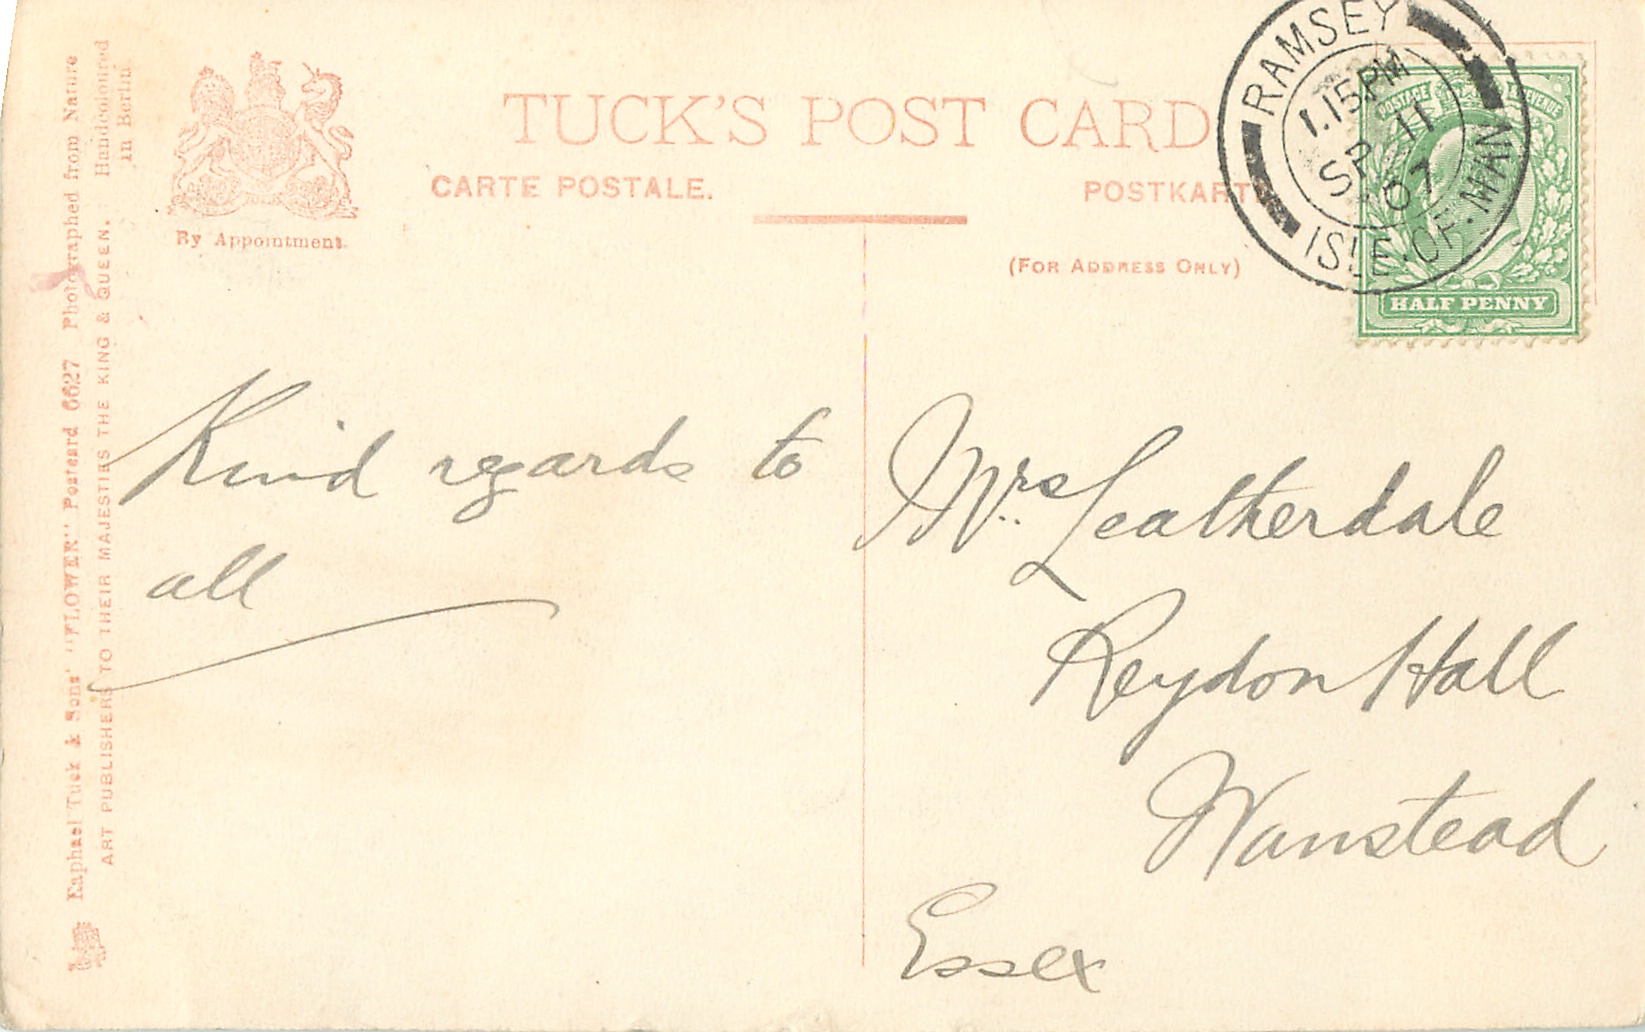 TUCK'S POST CARD
CARTE POSTALE.
POSTKARTE
(FOR ADDRESS ONLY)
By Appointment.
RAMSEY
1.15PM
SP 11
07
ISLE.OF.MAN
POSTAGE
REVENUE
HALF PENNY
Kind regards to
all
Mrs Leatherdale
Reydon Hall
Wanstead
Essex
Raphael Tuck & Sons' "FLOWER" Postcard 6627 Photographed from Nature
ART PUBLISHERS TO THEIR MAJESTIES THE KING & QUEEN. Handcoloured
in Berlin